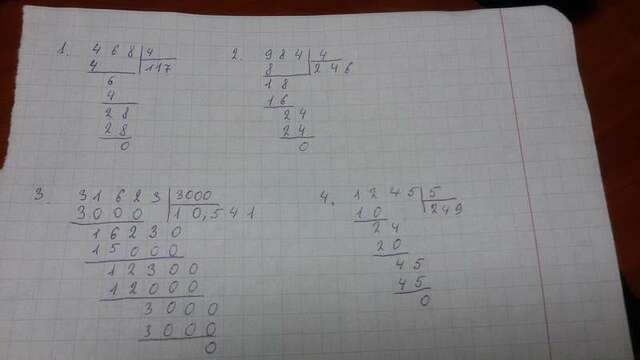 1. 468 | 4
4 | 117
6
4
28
28
0
2. 984 | 4
8 | 246
18
16
24
24
0
3. 31623 | 3000
3000 | 10,541
16230
15000
12300
12000
3000
3000
0
4. 1245 | 5
10 | 249
24
20
45
45
0